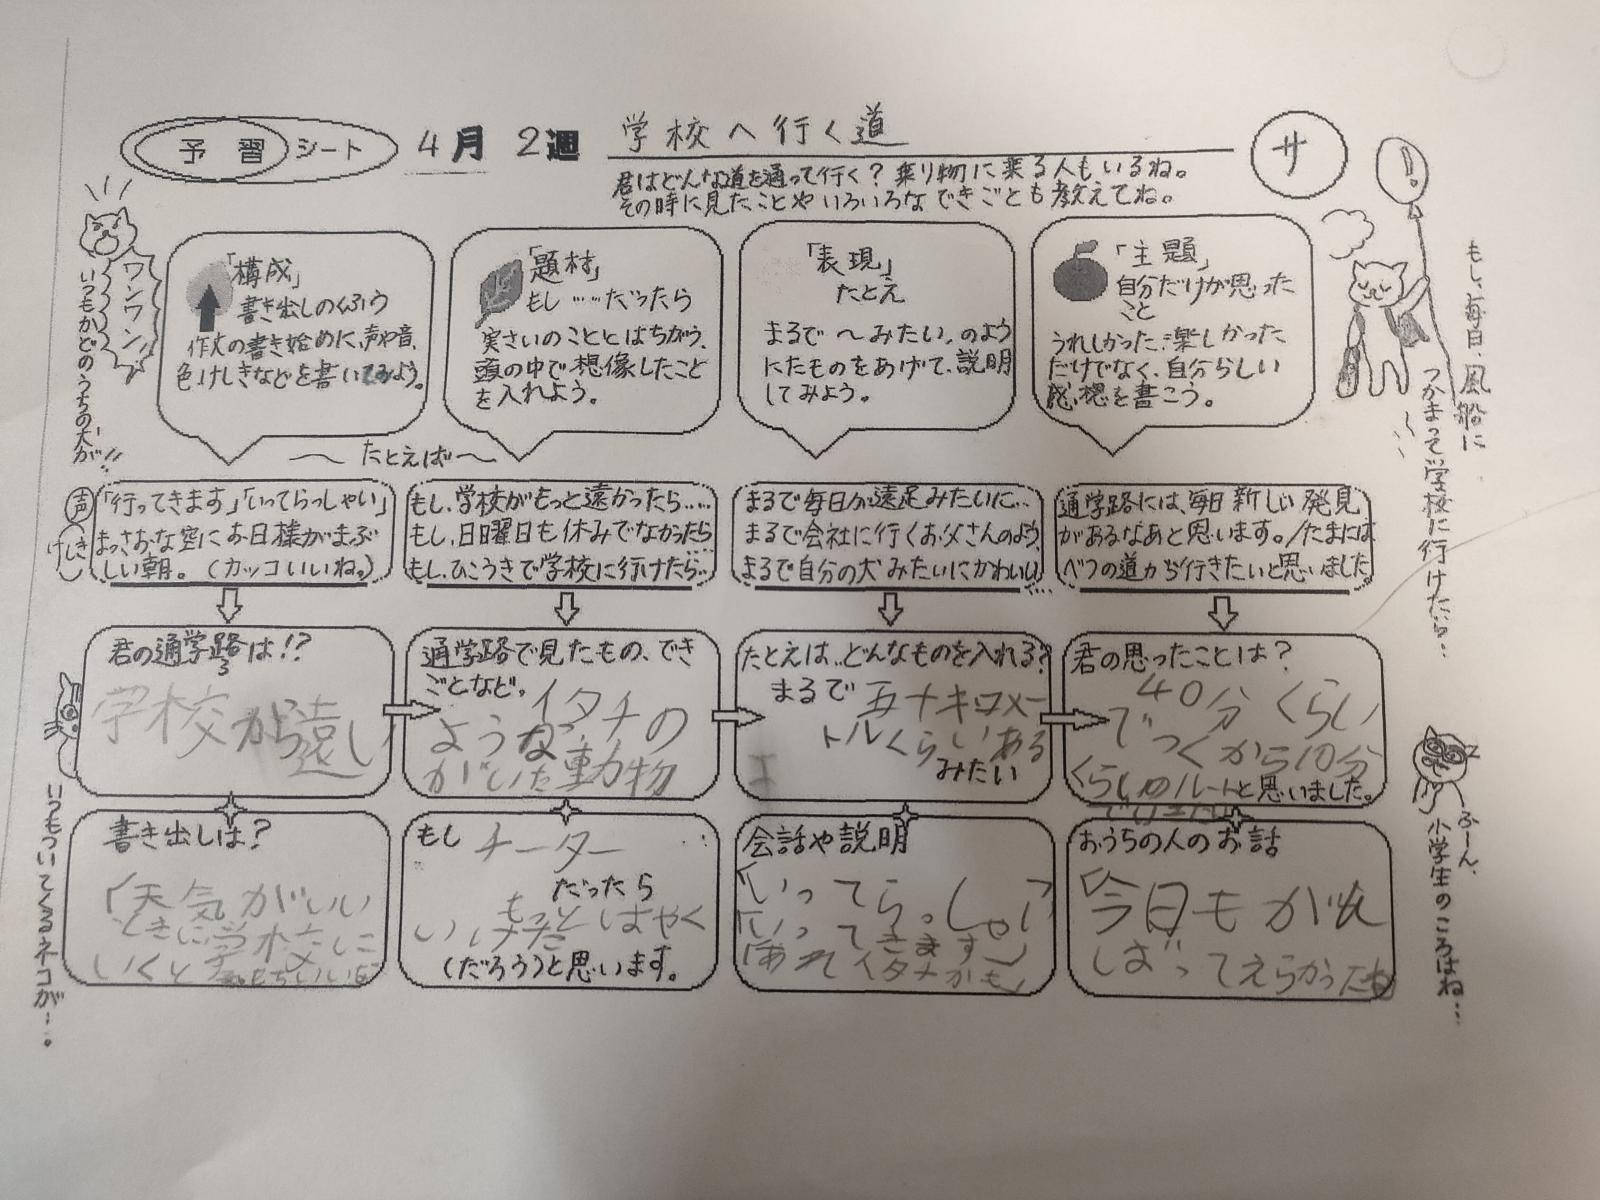 予習シート 4月 2週 学校へ行く道
サ
君はどんな道を通って行く？乗り物に乗る人もいるね。
その時に見たことやいろいろなできごとも教えてね。
ワンワン
いつもかどのうちの犬が!!
「構成」
書き出しのくふう
作文の書き始めに、声や音、
色、けしきなどを書いてみよう。
「題材」
もし……だったら
実さいのこととはちがう、
頭の中で想像したこと
を入れよう。
「表現」
たとえ
まるで〜みたい。のよう
にたものをあげて、説明
してみよう。
「主題」
自分だけが思った
こと
うれしかった、楽しかった
だけでなく、自分らしい
感想を書こう。
!
もし、毎日、風船に
つかまって学校に行けたら…
〜たとえば〜
声
けしき
「行ってきます」「いってらっしゃい」
まっさおな空にお日様がまぶ
しい朝。(カッコいいね。)
もし、学校がもっと遠かったら……
もし、日曜日も休みでなかったら
もし、ひこうきで学校に行けたら…
まるで毎日が遠足みたいに…
まるで会社に行くお父さんのよう、
まるで自分の犬みたいにかわいい
通学路には、毎日新しい発見
があるなあと思います。/たまには
べつの道から行きたいと思いました
君の通学路は!?
ろ
学校が遠い
通学路で見たもの、でき
ごとなど。
イタチの
ような
動物
がいた
たとえは、どんなものを入れる?
まるで五十キロメー
トルくらいある
みたい
君の思ったことは?
40分くらい
でつくから10分
くらいのルート
と思いました。
書き出しは?
「天気がいい
ときに学校に
いくと気もちいいな
もし チーター
だったら
もっとはやく
いけた
(だろう)と思います。
会話や説明
「いってらっしゃい」
「いってきます」
「あれイタチかも」
おうちの人のお話
「今日もがん
ばってえらかったね
いつもついてくるネコが…。
ふーん、
小学生のころはね…